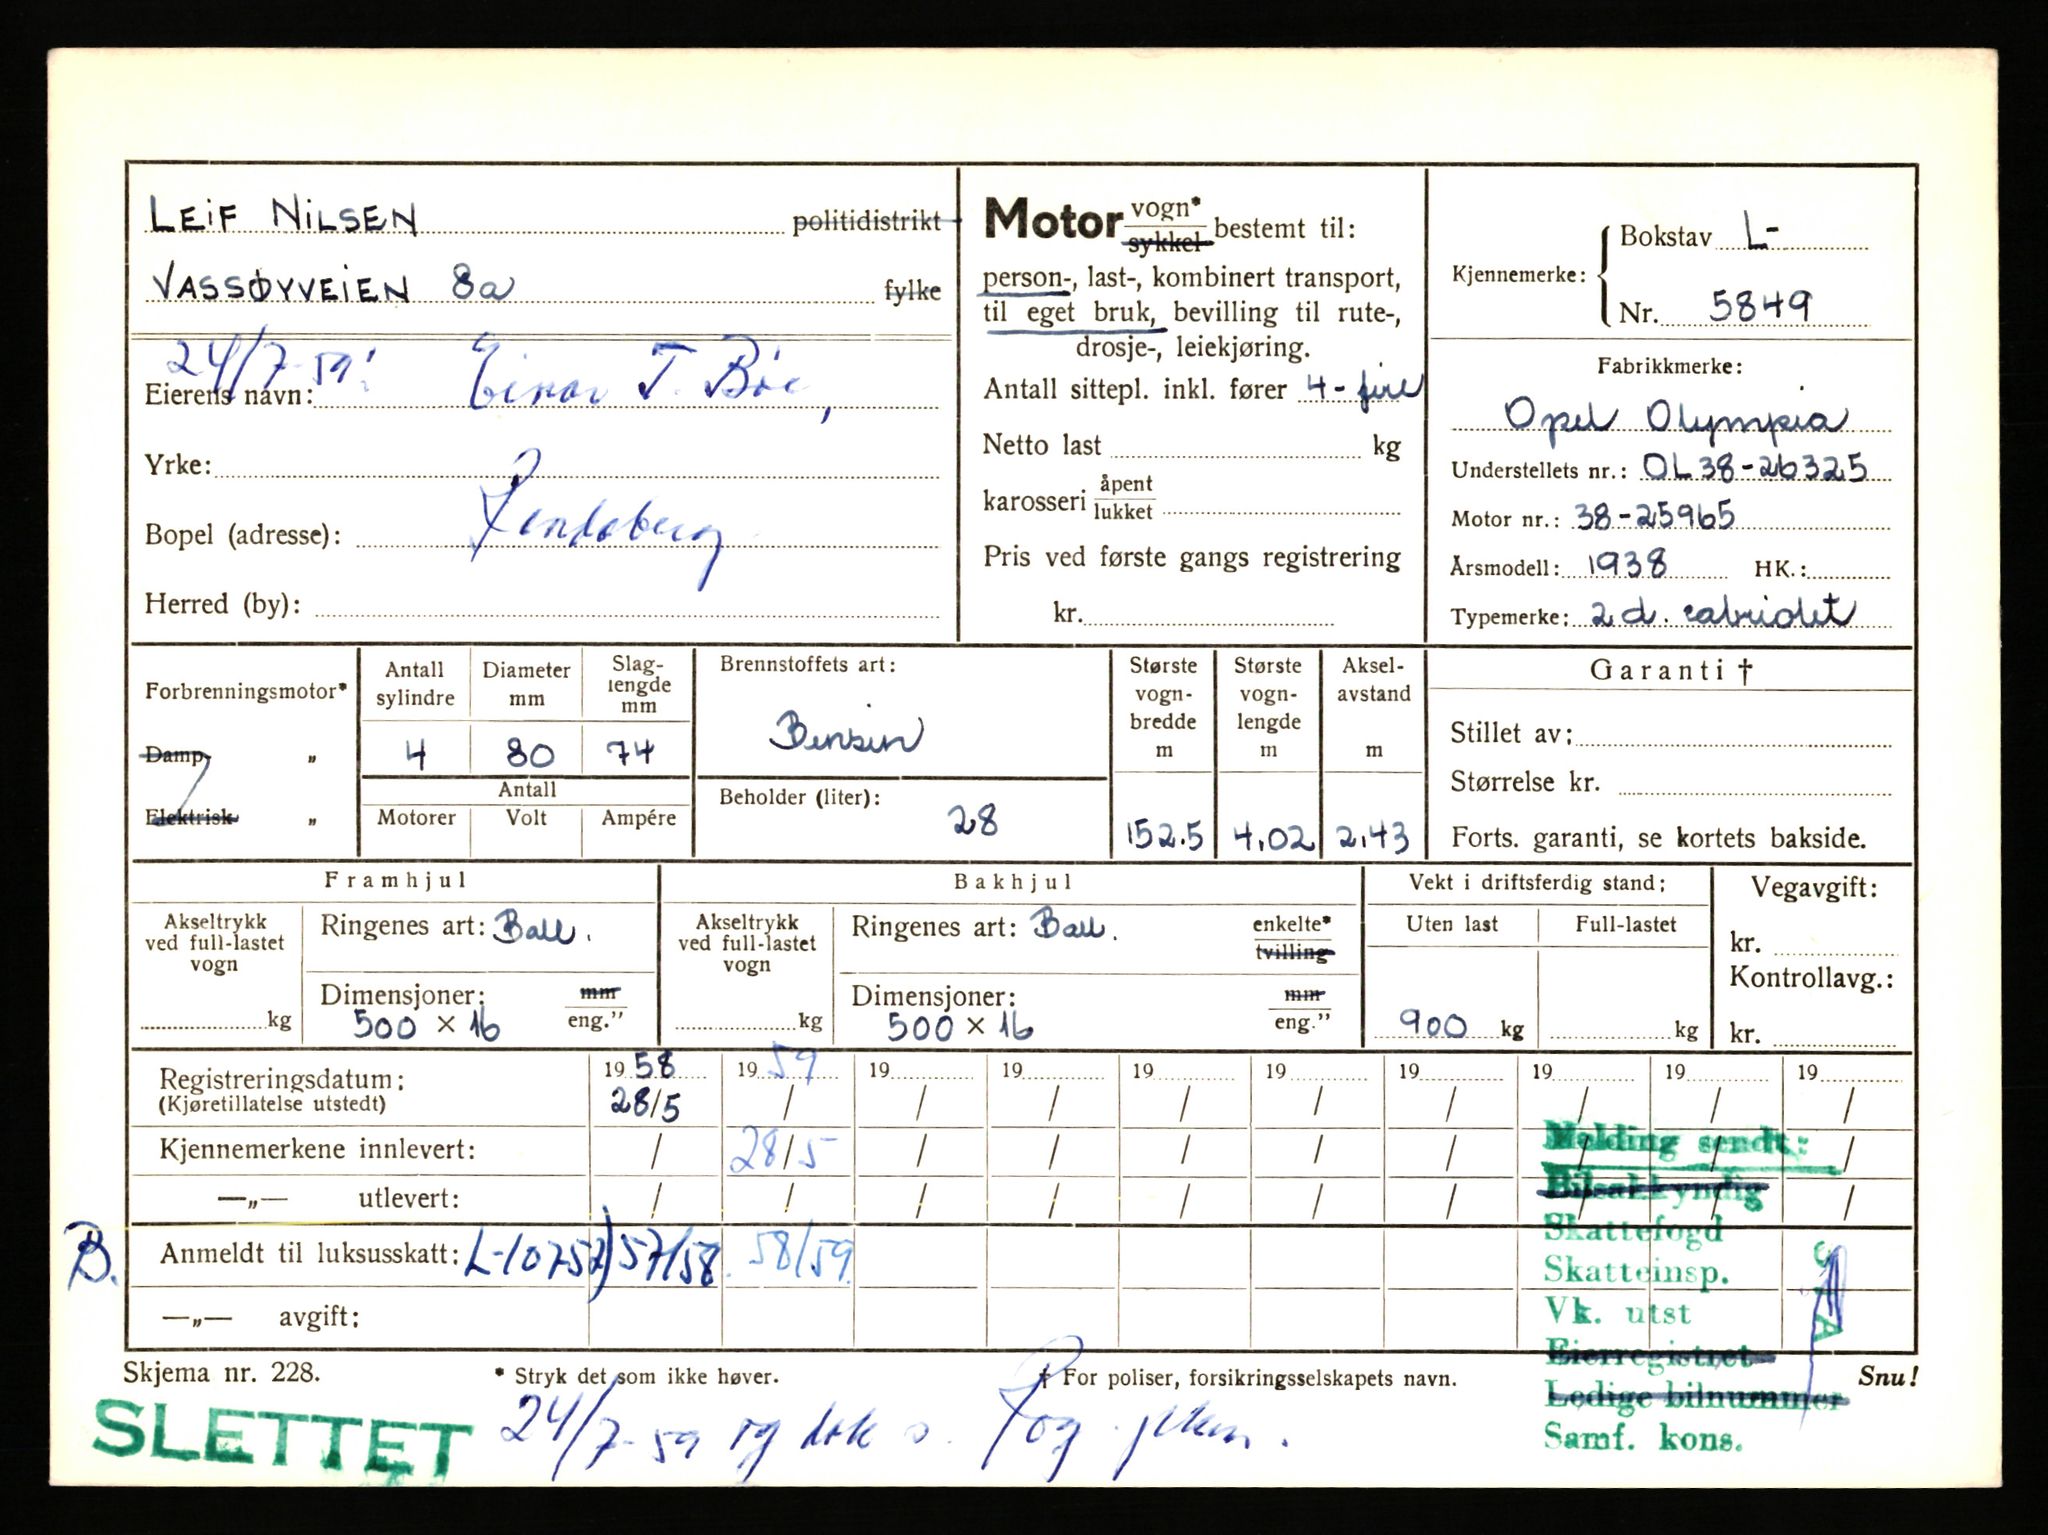 LEIF NILSEN politidistrikt
VASSØYVEIEN 8a fylke
24/7-59: Einar T. Böe,
Eierens navn:
Yrke:
Bopel (adresse):
Herred (by):
Motor vogn* sykkel bestemt til:
person-, last-, kombinert transport,
til eget bruk, bevilling til rute-,
drosje-, leiekjøring.
Antall sittepl. inkl. fører 4 - fire
Netto last kg
karosseri åpent lukket
Pris ved første gangs registrering
kr.
Kjennemerke: Bokstav L-
Nr. 5849
Fabrikkmerke:
Opel Olympia
Understellets nr.: OL38-26325
Motor nr.: 38-25965
Årsmodell: 1938 HK.:
Typemerke: 2 d. cabriolet
Forbrenningsmotor*
Damp „
Elektrisk „
Antall sylindre
Diameter mm
Slag-lengde mm
4 80 74
Antall
Motorer Volt Ampére
Brennstoffets art:
Bensin
Beholder (liter):
28
Største vogn-bredde m
152.5
Største vogn-lengde m
4.02
Aksel-avstand m
2.43
Garanti †
Stillet av:
Størrelse kr.
Forts. garanti, se kortets bakside.
Framhjul
Akseltrykk ved full-lastet vogn
kg
Ringenes art: Ball.
Dimensjoner: mm eng."
500 × 16
Bakhjul
Akseltrykk ved full-lastet vogn
kg
Ringenes art: Ball. enkelte* tvilling
Dimensjoner: mm eng."
500 × 16
Vekt i driftsferdig stand:
Uten last Full-lastet
900 kg kg
Vegavgift:
kr.
Kontrollavg.:
kr.
Registreringsdatum: 1958 1959 19 19 19 19 19 19 19 19
(Kjøretillatelse utstedt) 28/5 / / / / / / / / /
Kjennemerkene innlevert: / 28/5 / / / / / / / /
—„— utlevert: / / / / / / / / / /
B. Anmeldt til luksusskatt: L-10752) 57/58. 58/59.
—„— avgift:
Melding sendt:
Bilsakkyndig
Skattefogd
Skatteinsp.
Vk. utst
Eierregistret
Ledige bilnummer
Samf. kons.
Skjema nr. 228. * Stryk det som ikke høver. † For poliser, forsikringsselskapets navn. Snu!
SLETTET 24/7-59